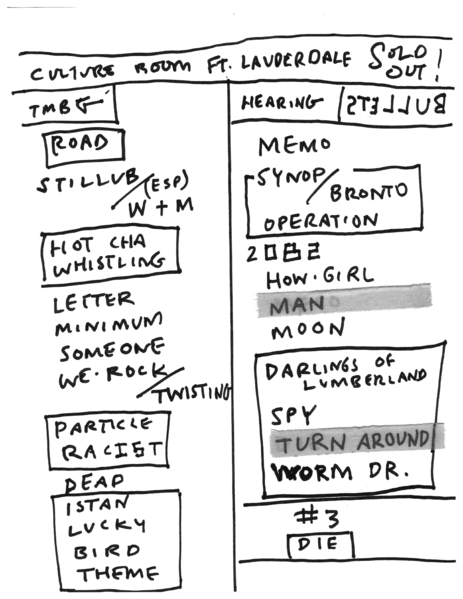 CULTURE ROOM FT. LAUDERDALE SOLD OUT!
TMBG
ROAD
STILLUB / (ESP)
W + M
HOT CHA
WHISTLING
LETTER
MINIMUM
SOMEONE
WE·ROCK
/ TWISTING
PARTICLE
RACIST
DEAD
ISTAN
LUCKY
BIRD
THEME
HEARING BULLETS
MEMO
SYNOP / BRONTO
OPERATION
2082
HOW·GIRL
MAN
MOON
DARLINGS OF
LUMBERLAND
SPY
TURN AROUND
WORM DR.
#3
DIE